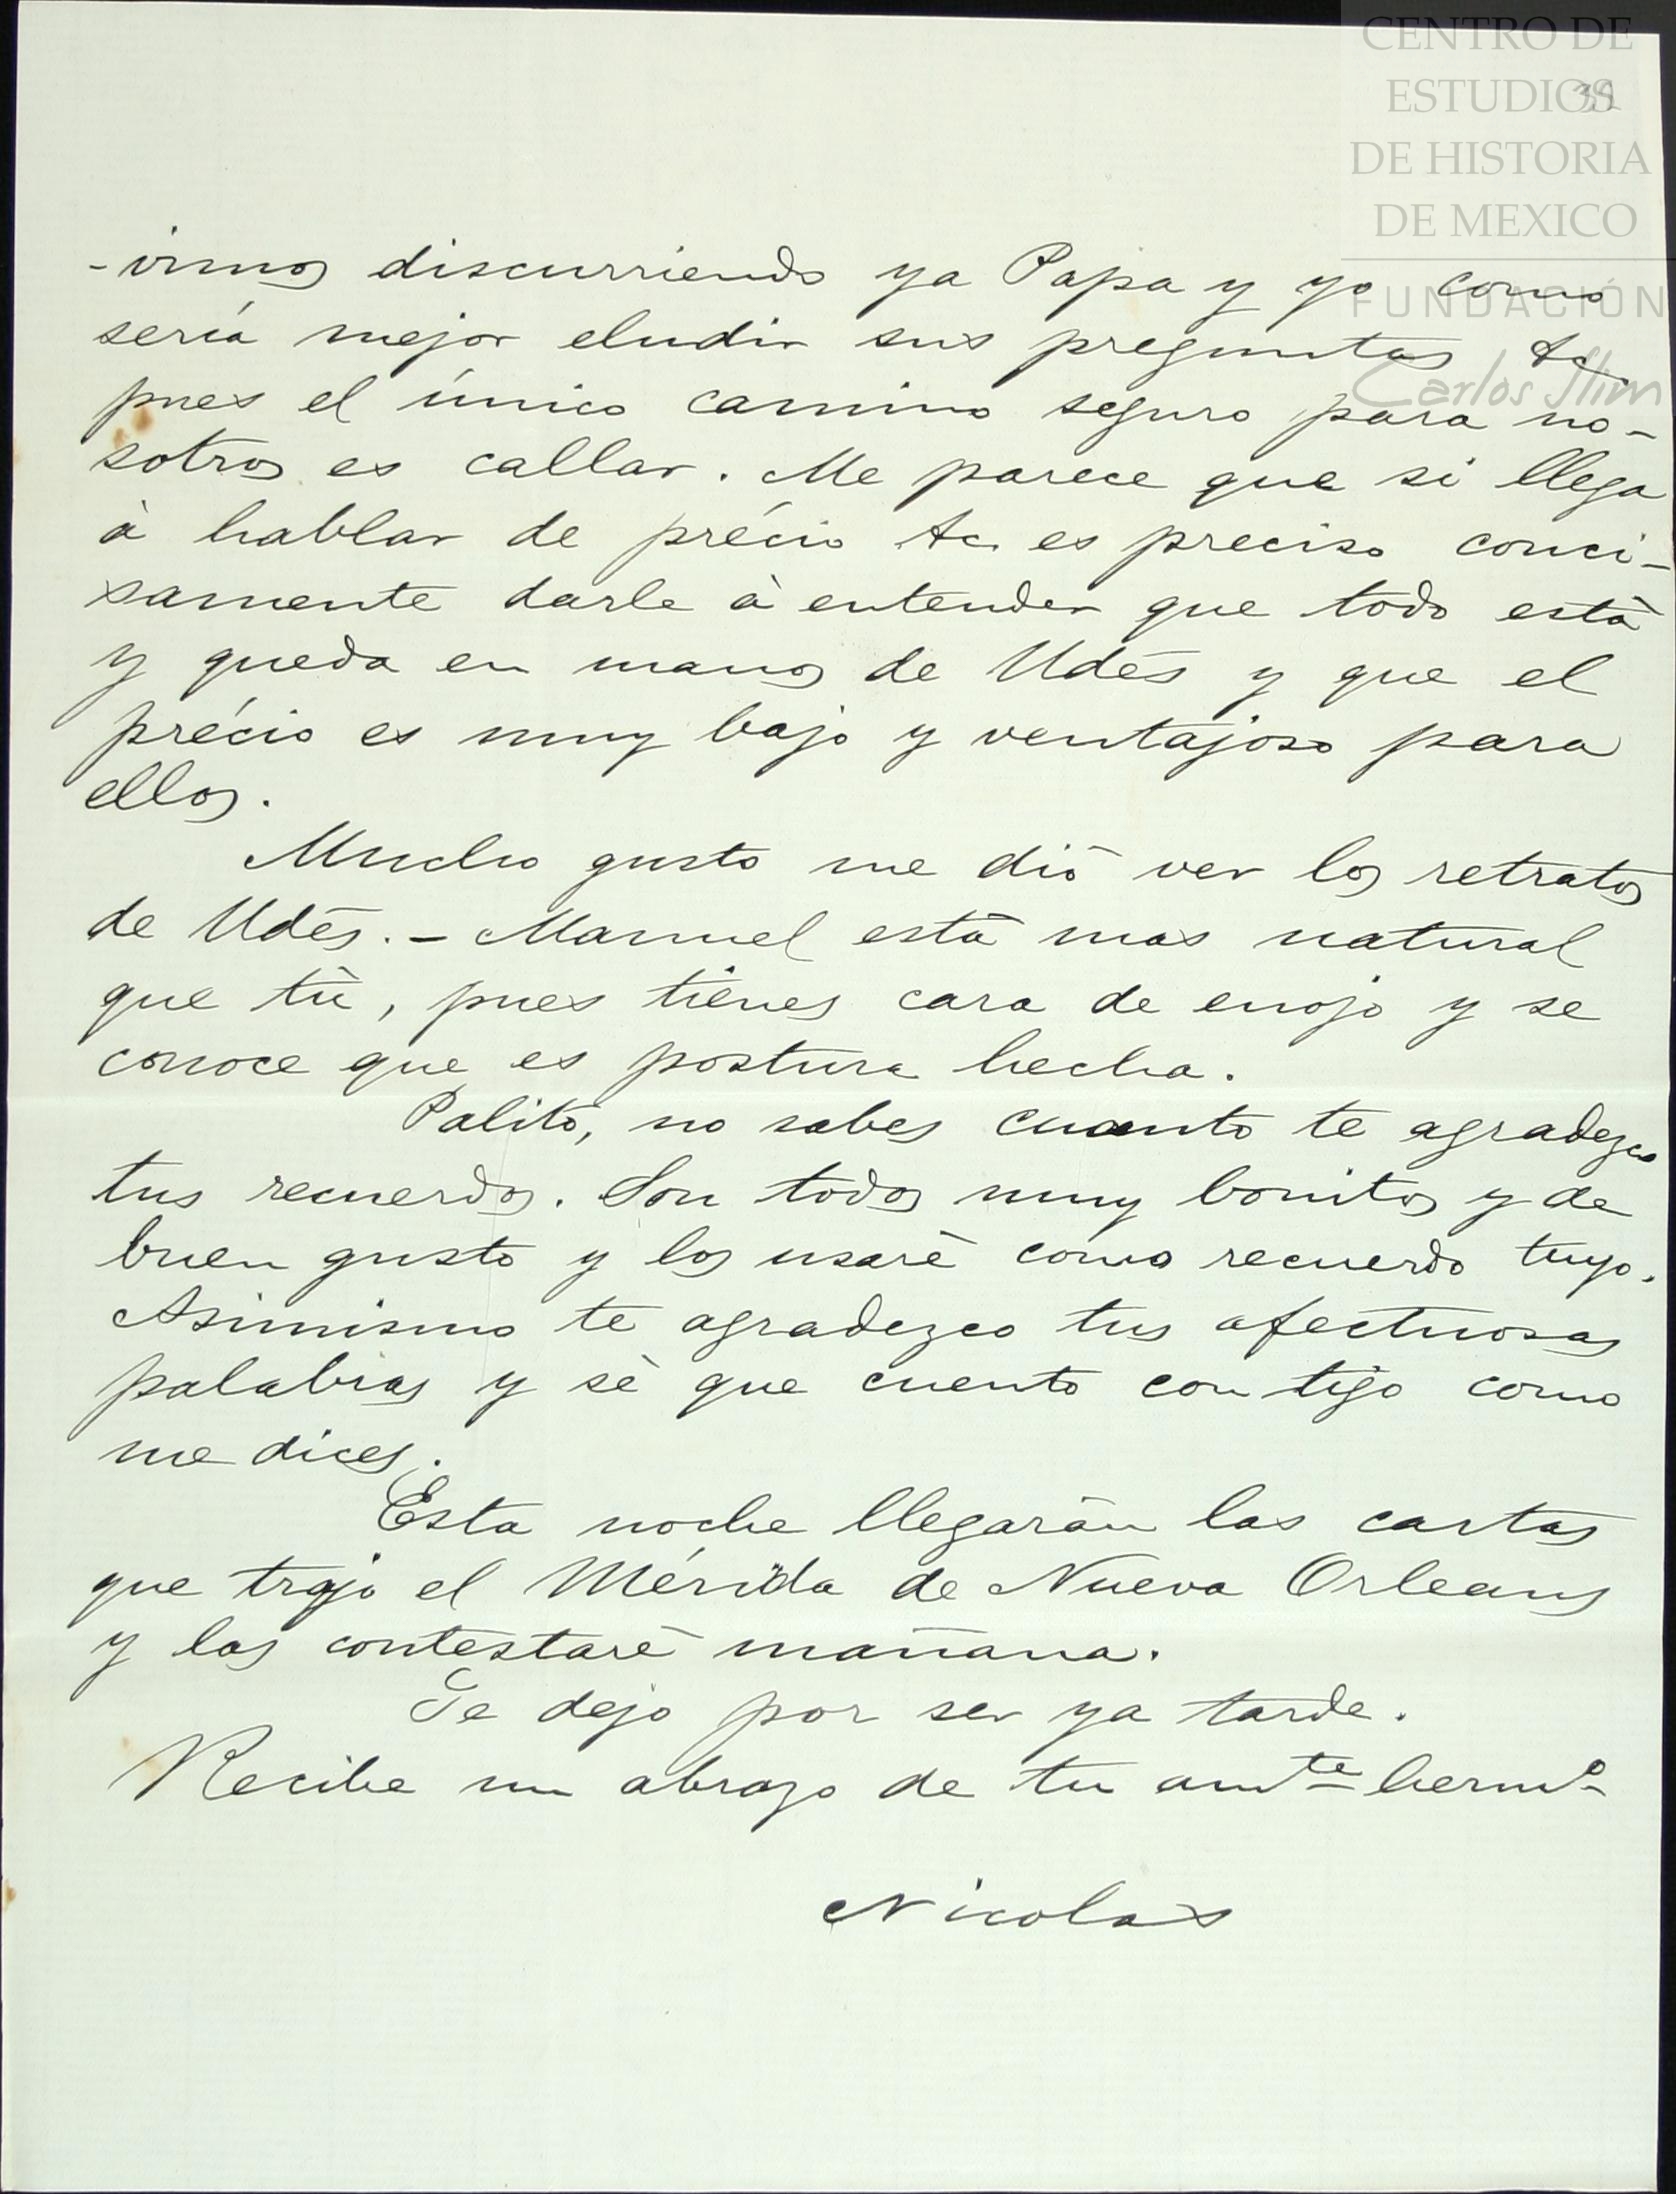 CENTRO DE
ESTUDIOS
DE HISTORIA
DE MEXICO
FUNDACIÓN
Carlos Slim
-vimos discurriendo ya Papa y yo como
sería mejor eludir sus preguntas &c
pues el único camino seguro para no-
sotros es callar. Me parece que si llega
à hablar de précio &c es preciso conci-
samente darle à entender que todo està
y queda en manos de Udés y que el
précio es muy bajo y ventajoso para
ellos.
Mucho gusto me diò ver los retratos
de Udés. - Manuel està mas natural
que tù, pues tienes cara de enojo y se
conoce que es postura hecha.
Palito, no sabes cuanto te agradezco
tus recuerdos. Son todos muy bonitos y de
buen gusto y los usaré como recuerdo tuyo.
Asimismo te agradezco tus afectuosas
palabras y sè que cuento con tigo como
me dices.
Esta noche llegarán las cartas
que trajo el Mérida de Nueva Orleans
y las contestaré mañana.
Te dejo por ser ya tarde.
Recibe un abrazo de tu amte hermo
Nicolas